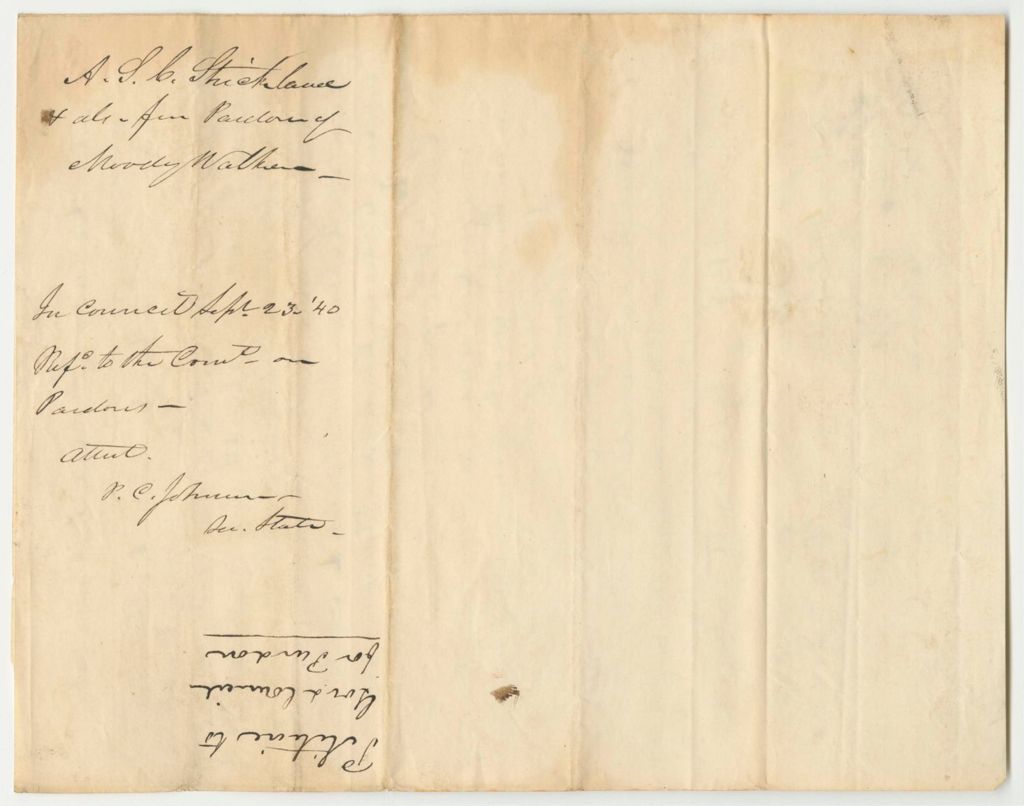 A. S. C. Strickland
& als - for Pardon of
Moody Walker -
In Council Sept. 23. '40
Refd. to the Comt. on
Pardons -
Attest.
P. C. Johnson -
Sec. State -
Petition to
Gov & Council
for Pardon